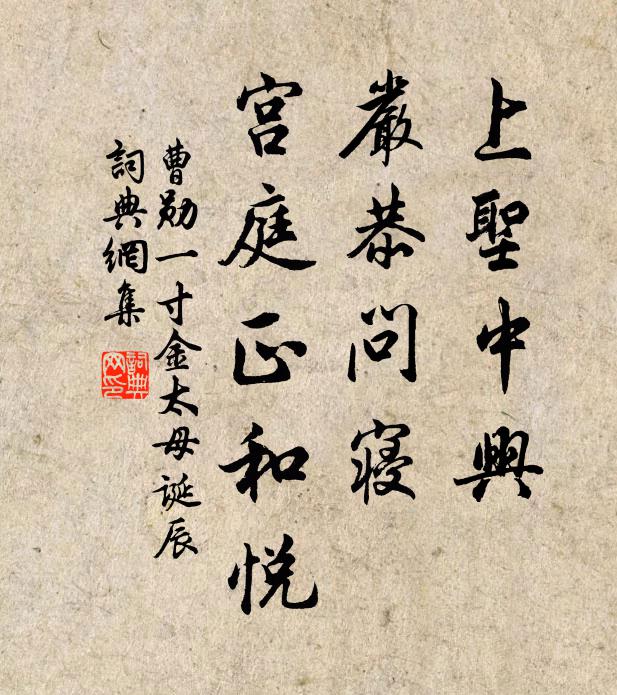 上聖中興
嚴恭問寝
宮庭正和悅
曹勛一寸金太母誕辰
詞典網集
詞典网印